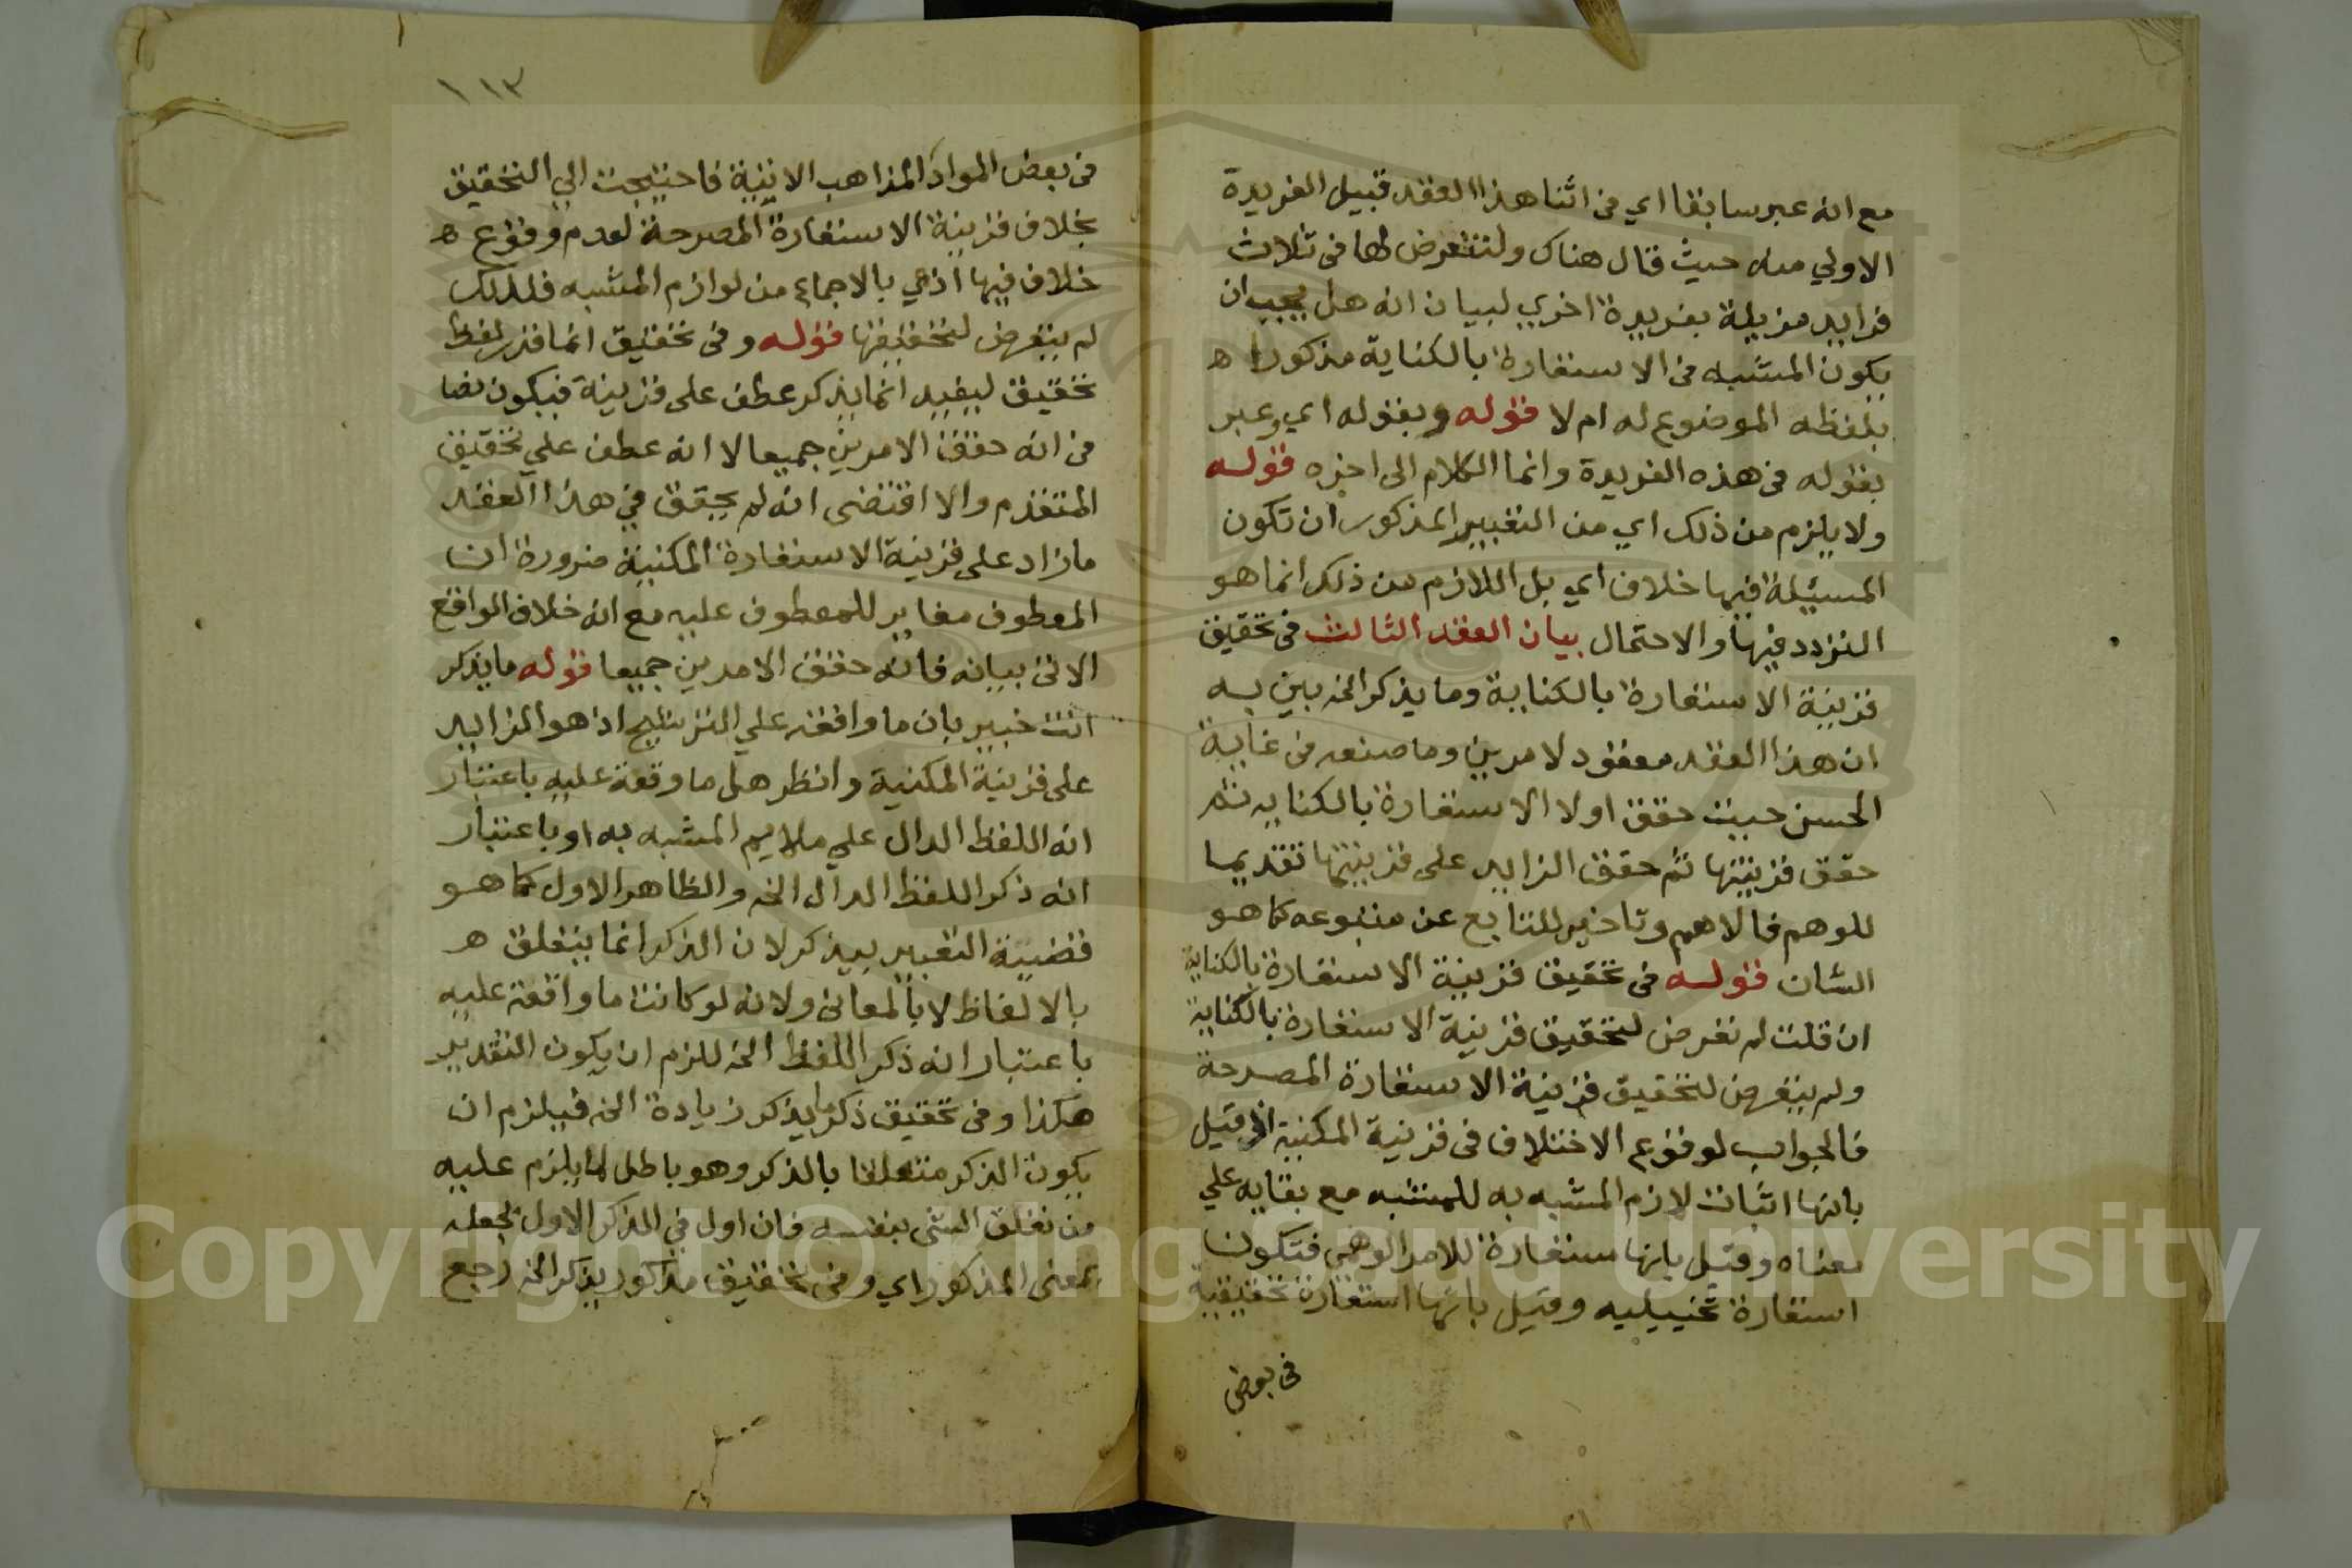 مع انه عبر سابقا اي في اثنا هذا العقد قبيل الفريدة
الاولي منه حيث قال هناك ولنتعرض لها في ثلاث
فرايد مزيلة بفريدة اخري لبيان انه هل يجب ان
يكون المشبه في الاستعارة بالكناية مذكورا ه
بلفظه الموضوع له ام لا قوله وبقوله اي وعبر
بقوله في هذه الفريدة وانما الكلام الى اخره قوله
ولا يلزم من ذلك اي من التعبير المذكور ان تكون
المسيئلة فيها خلاف اي بل اللازم من ذلك انما هو
التردد فيها والاحتمال بيان العقد الثالث في تحقيق
قرينة الاستعارة بالكناية وما يذكر الخ بين به
ان هذا العقد معقود لامرين وما صنعه في غاية
الحسن حيث حقق اولا الاستعارة بالكنايه ثم
حقق قرينتها ثم حقق الزايد على قرينتها تقديما
للوهم فالاهم وتاخير للتابع عن متبوعه كما هو
الشان قوله في تحقيق قرينة الاستعارة بالكناية
ان قلت لم تعرض لتحقيق قرينة الاستعارة بالكناية
ولم يتعرض لتحقيق قرينة الاستعارة المصرحة
فالجواب لوقوع الاختلاف في قرينة المكنية اذ قيل
بانها اثبات لازم المشبه به للمشبه مع بقايه علي
معناه وقيل بانها مستعارة للامر الوهمي فتكون
استعارة تخييليه وقيل بانها استعارة تحقيقية
في بعض
١١٣
في بعض المواد المذاهب الاتية فاحتيجت الي التحقيق
بخلاف قرينة الاستعارة المصرحة لعدم وقوع ه
خلاف فيها اذ هي بالاجماع من لوازم المشبه فلذلك
لم يتعرض لتحقيقها قوله وفي تحقيق انما قدر لفظ
تحقيق ليفيد انما يذكر عطف على قرينة فيكون نصا
في انه حقق الامرين جميعا لا انه عطف علي تحقيق
المتقدم والا اقتضى انه لم يحقق في هذا العقد
ما زاد على قرينة الاستعارة المكنية ضرورة ان
المعطوف مغاير للمعطوف عليه مع انه خلاف الواقع
الاتي بيانه فانه حقق الامرين جميعا قوله ما يذكر
انت خبير بان ما واقعة علي الترشيح اذ هو الزايد
على قرينة المكنية وانظر هل ما وقعة عليه باعتبار
انه اللفظ الدال علي ملايم المشبه به او باعتبار
انه ذكر اللفظ الدال الخ والظاهر الاول كما هو
قضية التعبير بيذكر لان الذكر انما يتعلق ه
بالالفاظ لا بالمعاني ولانه لو كانت ما واقعة عليه
باعتبار انه ذكر اللفظ الخ للزم ان يكون التقدير
هكذا وفي تحقيق ذكر ما يذكر زيادة الخ فيلزم ان
يكون الذكر متعلقا بالذكر وهو باطل لما يلزم عليه
من تعلق الشي بنفسه فان اول في الذكر الاول بجعله
بمعنى المذكور اي وفي تحقيق مذكور يذكر الخ رجع
Copyright © King Saud University